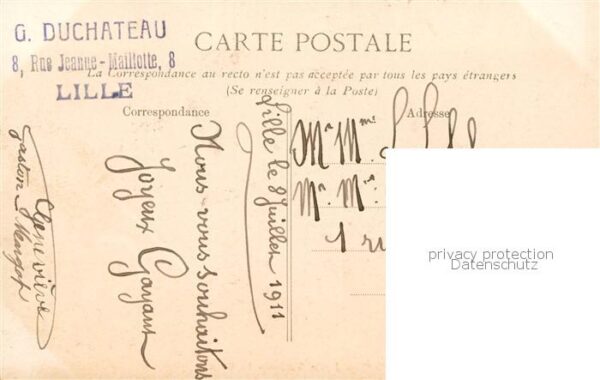 G. DUCHATEAU
8, Rue Jeanne-Maillotte, 8
LILLE
CARTE POSTALE
La Correspondance au recto n'est pas acceptée par tous les pays étrangers
(Se renseigner à la Poste)
Correspondance
Adresse
Lille le 8 Juillet 1911
Nous vous souhaitons
Joyeux Gayant
Geneviève
Gaston
Mr Mme
Mr Mme
1 ru
privacy protection
Datenschutz